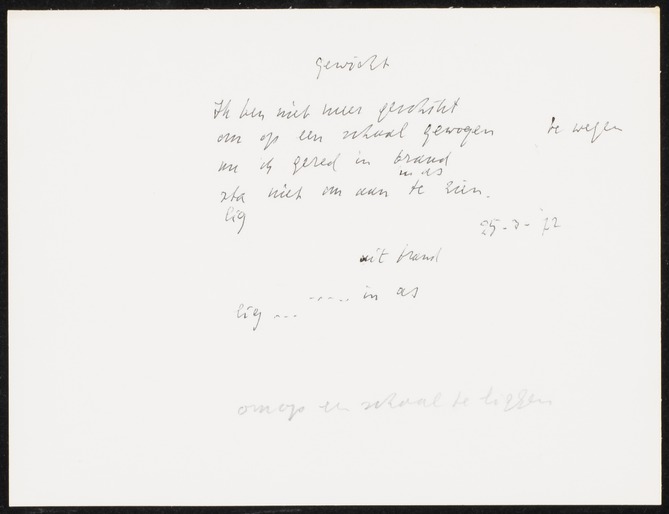 gewicht
Ik ben niet meer geschikt
om op een schaal gewogen te wegen
nu ik gered in brand
in as
sta niet om aan te zien.
lig
25-3-'72
uit brand
..... in as
lig ...
om op een schaal te liggen